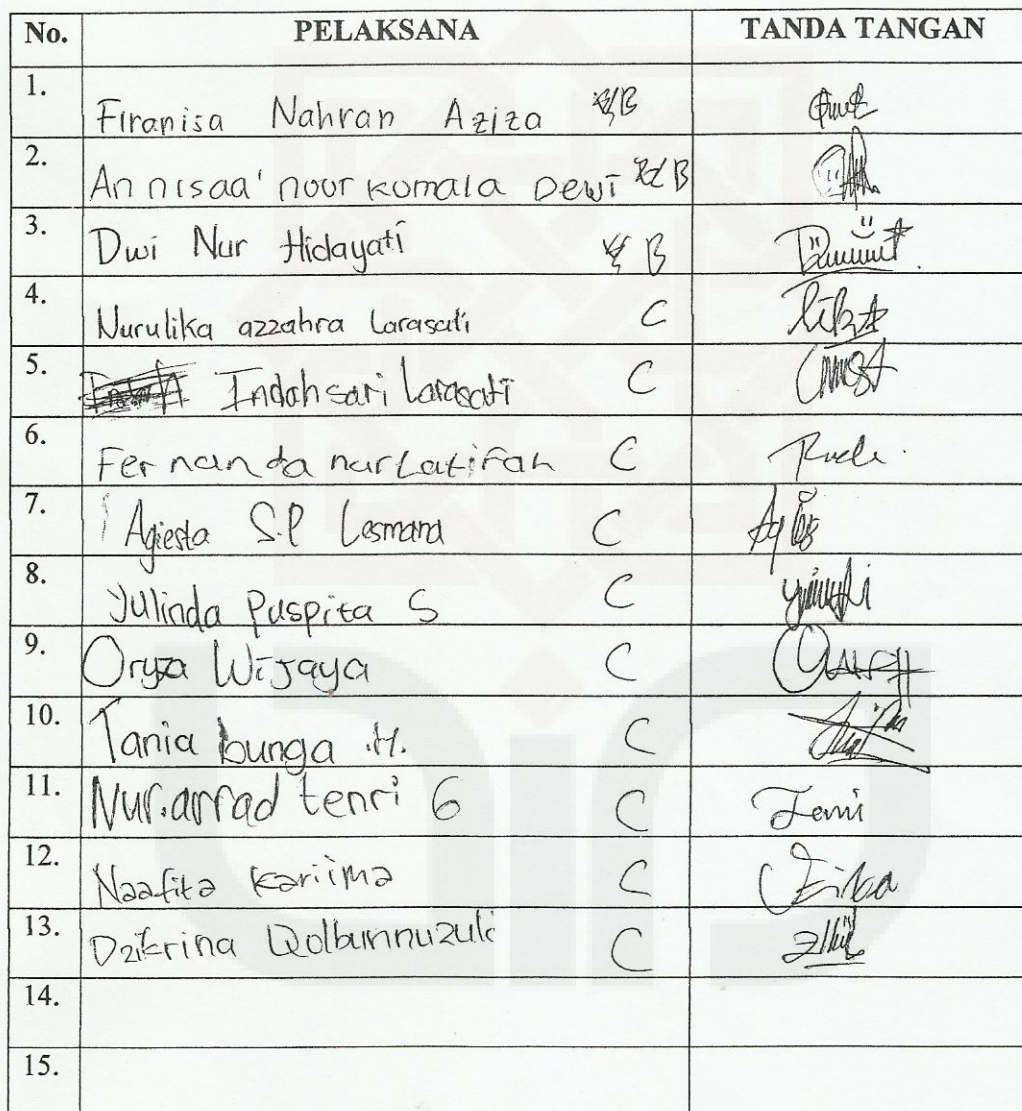 No. PELAKSANA TANDA TANGAN
1. Firanisa Nahran Aziza B
2. Annisaa' noor komala Dewi B
3. Dwi Nur Hidayati B
4. Nurulika azzahra Larasati C
5. Indah sari Larasati C
6. Fernanda nur Latifah C
7. Agiesta S.P Lesmana C
8. Yulinda Puspita S C
9. Oryza Wijaya C
10. Tania bunga .H. C
11. Nur.arrad tenri G C
12. Naafita Kariima C
13. Dzikrina Qolbunnuzuli C
14.
15.